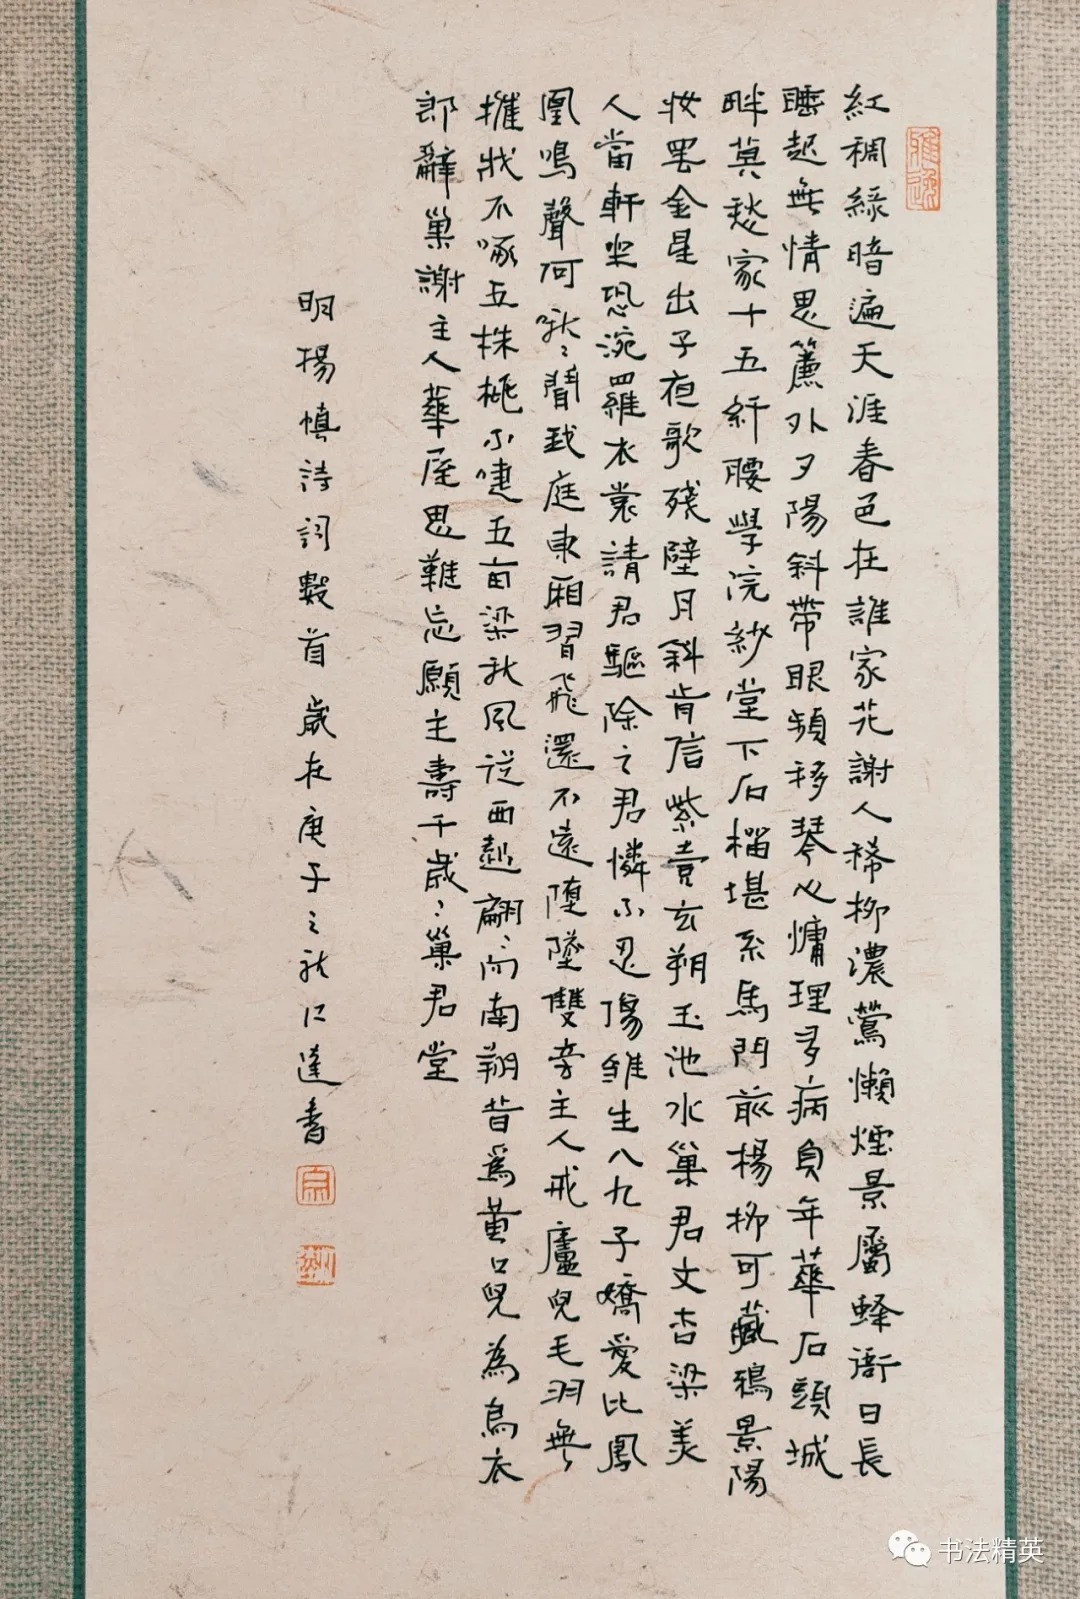 雅逸
紅稠綠暗遍天涯春色在誰家花謝人稀柳濃鶯懶煙景屬蜂衙日長
睡起無情思簾外夕陽斜帶眼頻移琴心慵理多病負年華石頭城
畔莫愁家十五纖腰學浣紗堂下石榴堪系馬門前楊柳可藏鴉景陽
妝罷金星出子夜歌殘璧月斜肯信紫壹玄朔玉池水巢君文杏梁美
人當軒坐恐涴羅衣裳請君驅除之君憐不忍傷雏生八九子嬌愛比鳳
凰鳴聲何啾〻鬪我庭東廂習飛還不遠墮墜雙亲主人戒廬兒毛羽無
摧戕不啄五株桃不唼五亩梁秋風從西起翩〻向南翔昔爲黃口兒為烏衣
郎辭巢謝主人華屋思難忘願主壽千歲〻巢君堂
明楊慎詩詞數首歲在庚子之秋仁達書
书法精英